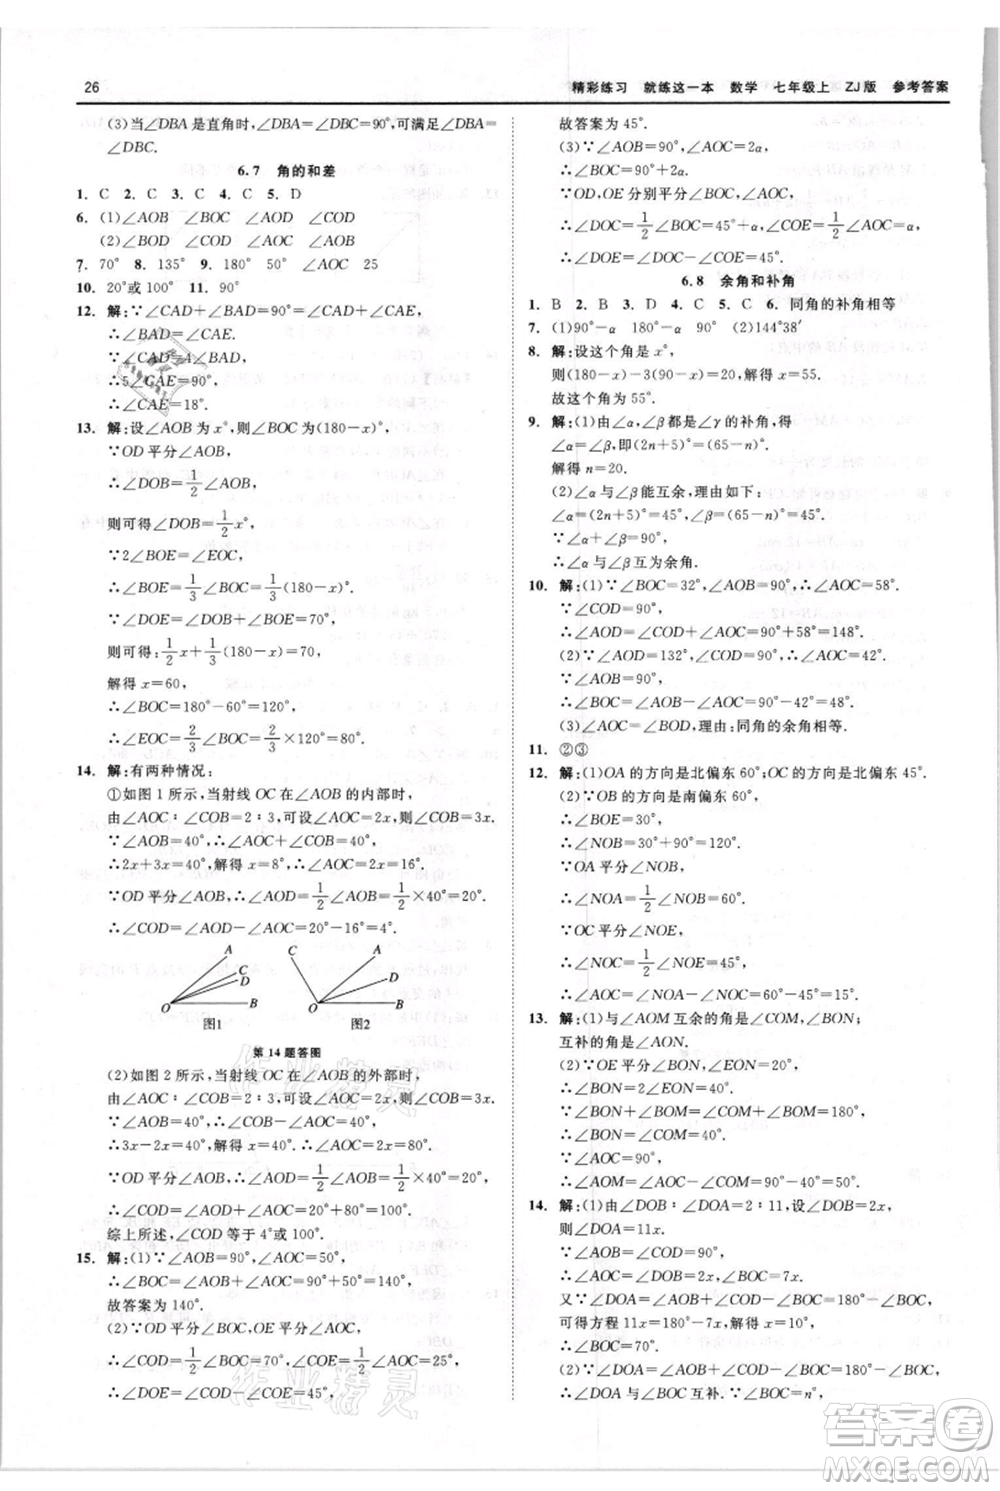 26
精彩练习 就练这一本 数学 七年级上 ZJ版 参考答案
(3)当∠DBA是直角时,∠DBA=∠DBC=90°,可满足∠DBA=
∠DBC.
6.7 角的和差
1. C 2. C 3. C 4. C 5. D
6. (1)∠AOB ∠BOC ∠AOD ∠COD
(2)∠BOD ∠COD ∠AOC ∠AOB
7. 70° 8. 135° 9. 180° 50° ∠AOC 25
10. 20°或100° 11. 90°
12. 解:∵∠CAD+∠BAD=90°=∠CAD+∠CAE,
∴∠BAD=∠CAE.
∵∠CAD=4∠BAD,
∴5∠CAE=90°,
∴∠CAE=18°.
13. 解:设∠AOB为x°,则∠BOC为(180-x)°.
∵OD平分∠AOB,
∴∠DOB=1/2∠AOB,
则可得∠DOB=1/2x°.
∵2∠BOE=∠EOC,
∴∠BOE=1/3∠BOC=1/3(180-x)°.
∵∠DOE=∠DOB+∠BOE=70°,
由此可得1/2x+1/3(180-x)=70,
解得x=60,
∴∠BOC=180°-60°=120°,
∴∠EOC=2/3∠BOC=2/3×120°=80°.
14. 解:有两种情况:
①如图1所示,当射线OC在∠AOB的内部时,
由∠AOC∶∠COB=2∶3,可设∠AOC=2x,则∠COB=3x.
∵∠AOB=40°,∴∠AOC+∠COB=∠AOB=40°,
∴2x+3x=40°,解得x=8°,∴∠AOC=2x=16°.
∵OD平分∠AOB,∴∠AOD=1/2∠AOB=1/2×40°=20°,
∴∠COD=∠AOD-∠AOC=20°-16°=4°.
A
C
D
O
B
图1
C
A
D
O
B
图2
第14题答图
(2)如图2所示,当射线OC在∠AOB的外部时,
由∠AOC∶∠COB=2∶3,可设∠AOC=2x,则∠COB=3x.
∵∠AOB=40°,∴∠COB-∠AOC=∠AOB=40°,
∴3x-2x=40°,解得x=40°,∴∠AOC=2x=80°.
∵OD平分∠AOB,∴∠AOD=1/2∠AOB=1/2×40°=20°,
∴∠COD=∠AOC+∠AOD=20°+80°=100°.
综上所述,∠COD等于4°或100°.
15. 解:(1)∵∠AOB=90°,∠AOC=50°,
∴∠BOC=∠AOB+∠AOC=90°+50°=140°.
故答案为140°.
(2)∵OD平分∠BOC,OE平分∠AOC,
∴∠COD=1/2∠BOC=70°,∠COE=1/2∠AOC=25°,
∴∠DOE=∠COD-∠COE=45°,
故答案为45°.
(3)∵∠AOB=90°,∠AOC=2α,
∴∠BOC=90°+2α.
∵OD,OE分别平分∠BOC,∠AOC,
∴∠DOC=1/2∠BOC=45°+α,∠COE=1/2∠AOC=α,
∴∠DOE=∠DOC-∠COE=45°.
6.8 余角和补角
1. B 2. B 3. D 4. C 5. C 6. 同角的补角相等
7. (1)90°-α 180°-α (2)144°38′
8. 解:设这个角是x°,
则(180-x)-3(90-x)=20,解得x=55.
故这个角为55°.
9. 解:(1)由∠α,∠β都是∠γ的补角,得
∠α=∠β,即(2n+5)°=(65-n)°.
解得n=20.
(2)∠α与∠β能互余,理由如下:
∵∠α=(2n+5)°,∠β=(65-n)°,
∴∠α+∠β=90°,
∴∠α与∠β互为余角.
10. 解:(1)∵∠BOC=32°,∠AOB=90°,∴∠AOC=58°.
∵∠COD=90°,
∴∠AOD=∠COD+∠AOC=90°+58°=148°.
(2)∵∠AOD=132°,∠COD=90°,∴∠AOC=42°.
∵∠AOB=90°,
∴∠BOC=∠AOB-∠AOC=90°-42°=48°.
(3)∠AOC=∠BOD,理由:同角的余角相等.
11. ②③
12. 解:(1)OA的方向是北偏东60°;OC的方向是北偏东45°.
(2)∵OB的方向是南偏东60°,
∴∠BOE=30°,
∴∠NOB=30°+90°=120°.
∵OA平分∠NOB,
∴∠NOA=1/2∠NOB=60°.
∵OC平分∠NOE,
∴∠NOC=1/2∠NOE=45°,
∴∠AOC=∠NOA-∠NOC=60°-45°=15°.
13. 解:(1)与∠AOM互余的角是∠COM,∠BON;
互补的角是∠AON.
(2)∵∠BON+∠BOM=∠COM+∠BOM=90°,
∴∠BON=∠COM=40°,
∴∠AOC=∠BOM=90°-40°=50°.
14. 解:(1)由∠DOB∶∠DOA=2∶11,设∠DOB=2x,
则∠DOA=11x.
∵∠AOB=∠COD,
∴∠AOC=∠DOB=2x,
∴∠BOC=7x.
又∵∠DOA=∠AOB+∠COD-∠BOC=180°-∠BOC,
可得方程11x=180°-7x,解得x=10°,
∴∠BOC=70°.
(2)∵∠AOD=∠AOB+∠COD-∠BOC=180°-∠BOC,
∴∠AOD与∠BOC互补.
作业精灵
作业精灵
答案卷
MXQE.COM